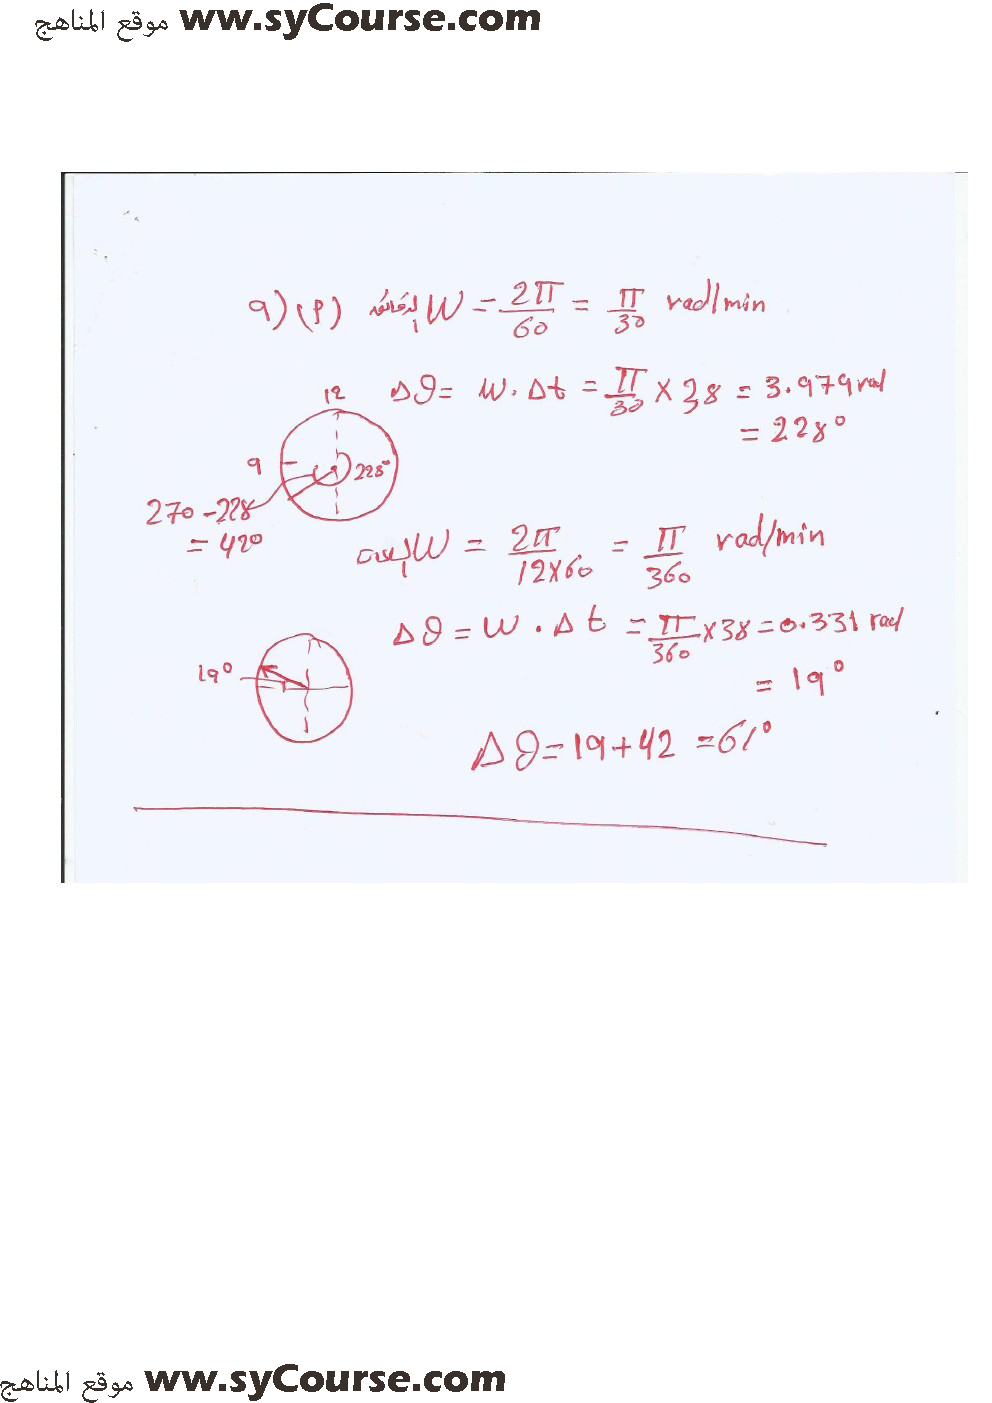 موقع المناهج ww.syCourse.com
9) (P) الدقائق W = 2π/60 = π/30 rad/min
Δθ = W . Δt = π/30 × 38 = 3.979 rad
= 228°
12
9
228°
270 - 228
= 42°
الساعات W = 2π/12×60 = π/360 rad/min
Δθ = W . Δt = π/360 × 38 = 0.331 rad
19°
= 19°
Δθ = 19 + 42 = 61°
موقع المناهج ww.syCourse.com